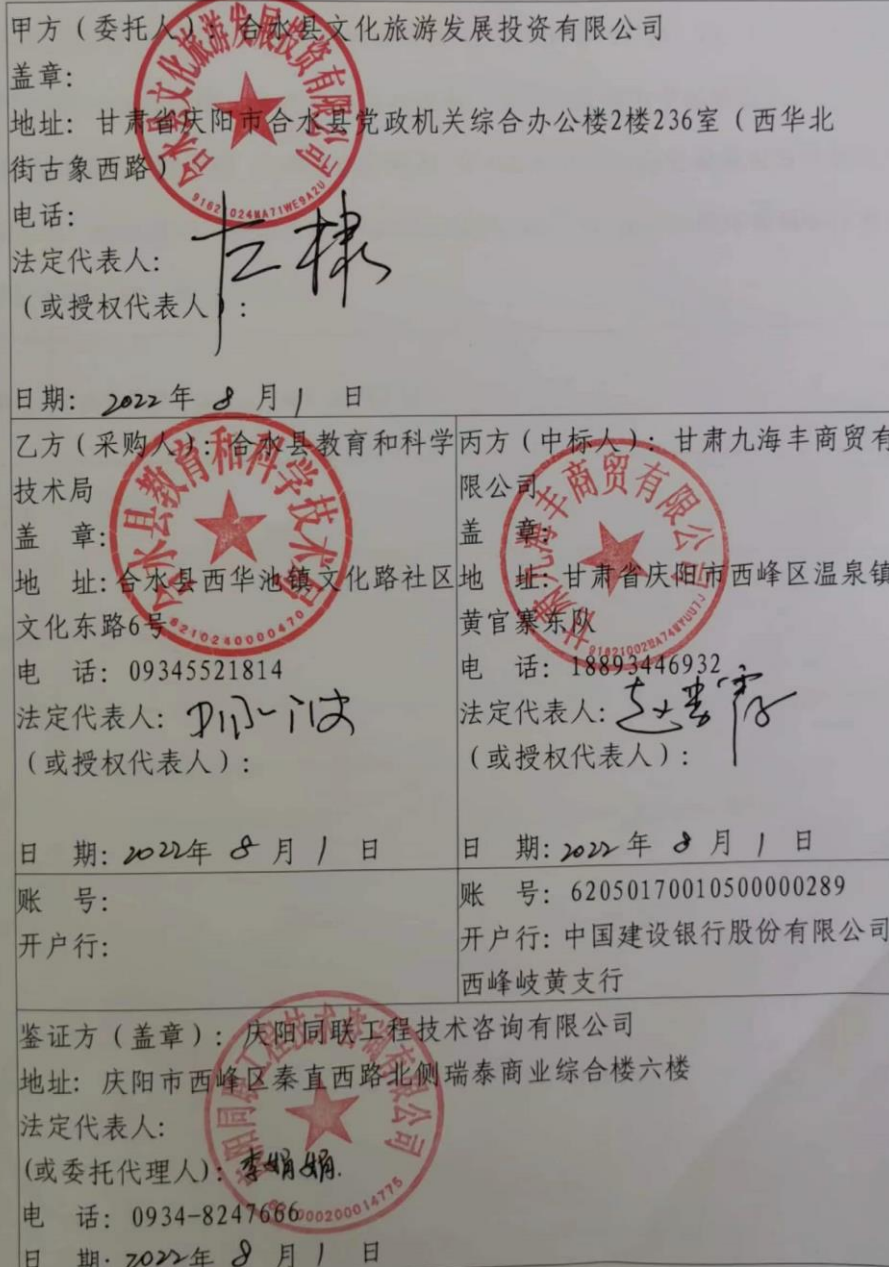 甲方（委托人）：合水县文化旅游发展投资有限公司
盖章：
地址：甘肃省庆阳市合水县党政机关综合办公楼2楼236室（西华北
街古象西路）
电话：
法定代表人：
（或授权代表人）：
日期：2022年 8 月 1 日
合水县文化旅游发展投资有限公司
91621024MA71WE9A2U
乙方（采购人）：合水县教育和科学
技术局
盖 章：
地 址：合水县西华池镇文化路社区
文化东路6号
电 话：09345521814
法定代表人：
（或授权代表人）：
日 期：2022年 8 月 1 日
合水县教育和科学技术局
6210240000470
丙方（中标人）：甘肃九海丰商贸有
限公司
盖 章：
地 址：甘肃省庆阳市西峰区温泉镇
黄官寨东队
电 话：18893446932
法定代表人：
（或授权代表人）：
日 期：2022年 8 月 1 日
甘肃九海丰商贸有限公司
账 号：
开户行：
账 号：62050170010500000289
开户行：中国建设银行股份有限公司
西峰岐黄支行
鉴证方（盖章）：庆阳同联工程技术咨询有限公司
地址：庆阳市西峰区秦直西路北侧瑞泰商业综合楼六楼
法定代表人：
(或委托代理人)：李娟娟.
电 话：0934-8247666
日 期：2022年 8 月 1 日
庆阳同联工程技术咨询有限公司